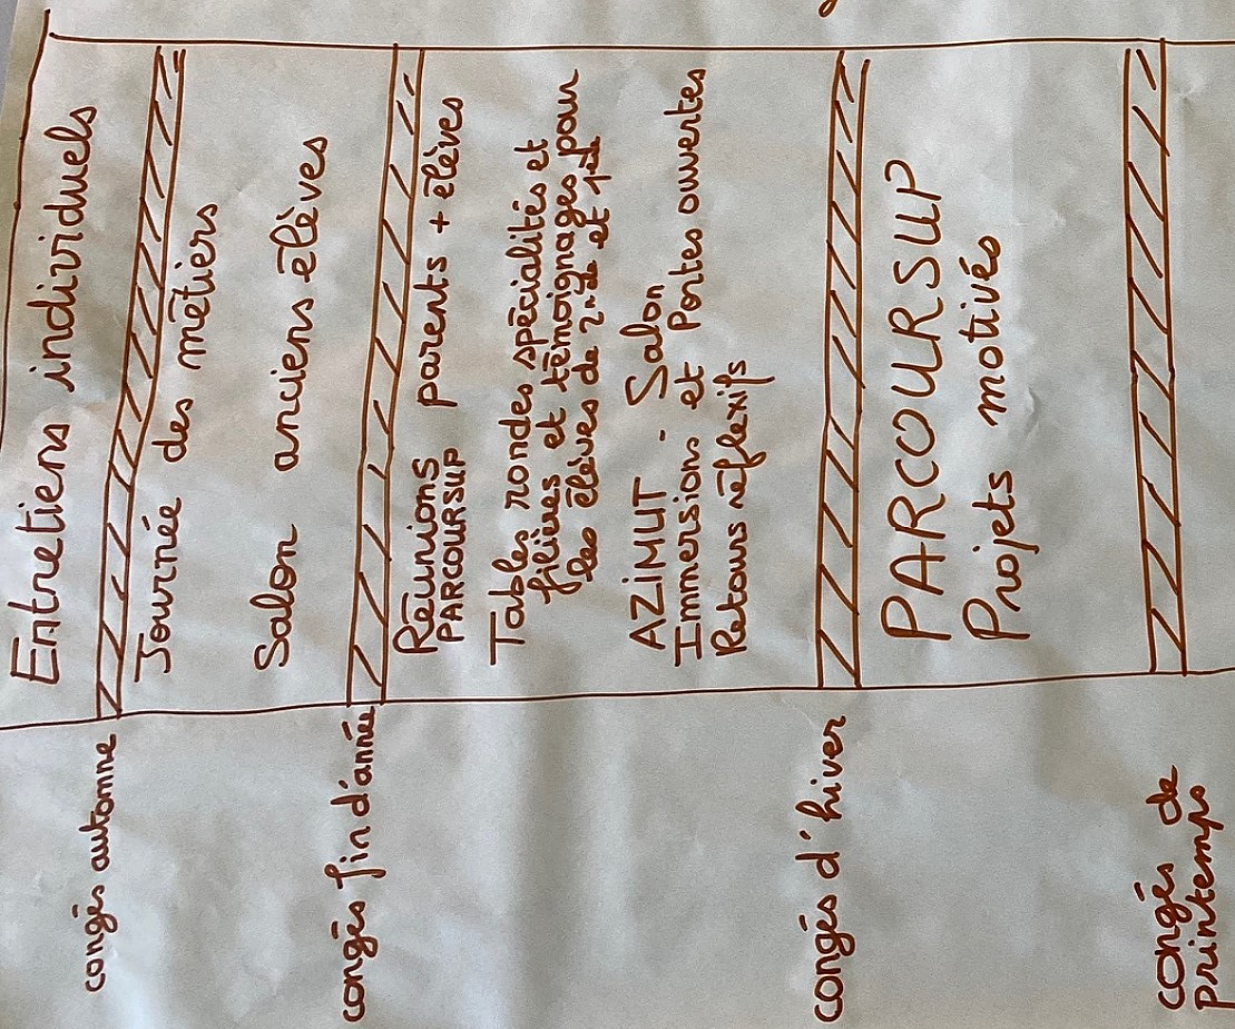 Entretiens individuels
congés automne
Journée des métiers
Salon anciens élèves
congés fin d'année
Réunions parents + élèves
PARCOURSUP
Tables rondes spécialités et
filières et témoignages pour
les élèves de 2nde et 1ère
AZIMUT - Salon
Immersions et Portes ouvertes
Retours réflexifs
congés d'hiver
PARCOURSUP
Projets motivés
congés de
printemps